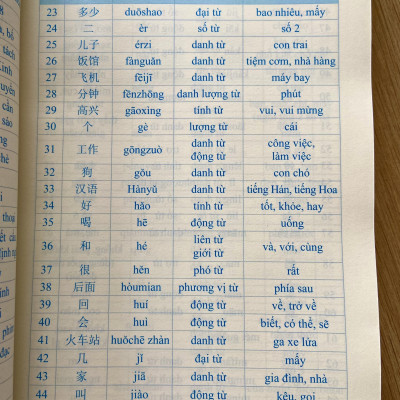 23 多少 duōshao đại từ bao nhiêu, mấy
24 二 èr số từ số 2
25 儿子 érzi danh từ con trai
26 饭馆 fànguǎn danh từ tiệm cơm, nhà hàng
27 飞机 fēijī danh từ máy bay
28 分钟 fēnzhōng danh lượng từ phút
29 高兴 gāoxìng tính từ vui, vui mừng
30 个 gè lượng từ cái
31 工作 gōngzuò danh từ động từ công việc, làm việc
32 狗 gǒu danh từ con chó
33 汉语 Hànyǔ danh từ tiếng Hán, tiếng Hoa
34 好 hǎo tính từ tốt, khỏe, hay
35 喝 hē động từ uống
36 和 hé liên từ giới từ và, với, cùng
37 很 hěn phó từ rất
38 后面 hòumian phương vị từ phía sau
39 回 huí động từ về, trở về
40 会 huì động từ biết, có thể, sẽ
41 火车站 huǒchē zhàn danh từ ga xe lửa
42 几 jǐ đại từ mấy
43 家 jiā danh từ gia đình, nhà
44 叫 jiào động từ kêu, gọi